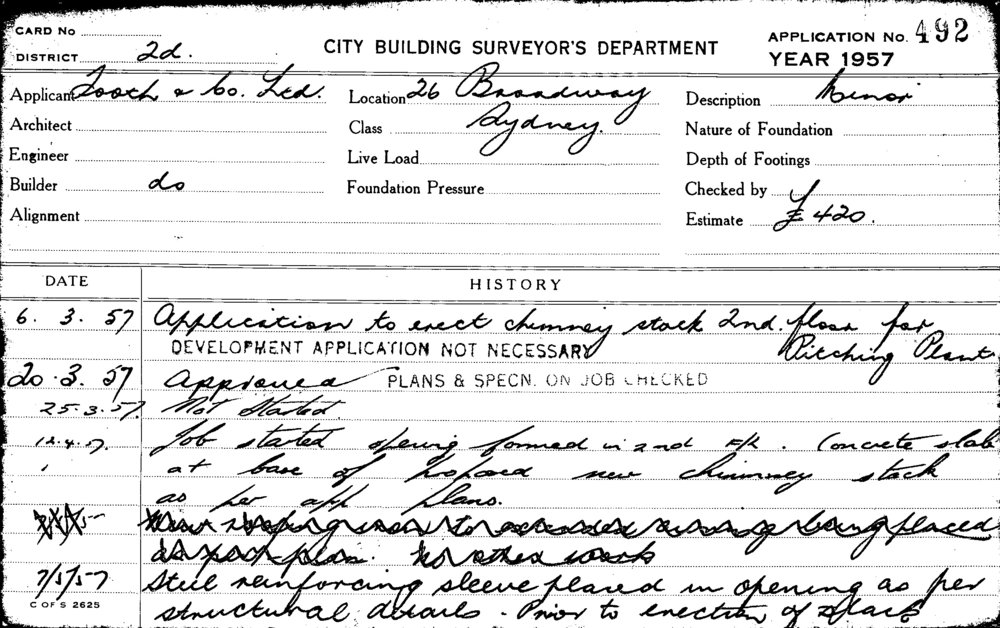 CARD No
DISTRICT 2d.
CITY BUILDING SURVEYOR'S DEPARTMENT
APPLICATION No. 492
YEAR 1957
Applicant Tooth & Co. Ltd.
Location 26 Broadway
Description Minor
Architect
Class Sydney.
Nature of Foundation
Engineer
Live Load
Depth of Footings
Builder do
Foundation Pressure
Checked by
Alignment
Estimate £ 420.
DATE
HISTORY
6. 3. 57 Application to erect chimney stack 2nd. floor for
Pitching Plant
DEVELOPMENT APPLICATION NOT NECESSARY
20.3.57 Approved PLANS & SPECN. ON JOB CHECKED
25.3.57. Not Started.
12.4.57. Job started opening formed in 2nd Flr. Concrete slab
at base of proposed new chimney stack
as per app plans.
New roofing iron to extended awning being placed
as per plan. No other work
7/5/57 Steel reinforcing sleeve placed in opening as per
structural details - Prior to erection of stack
C OF S 2625